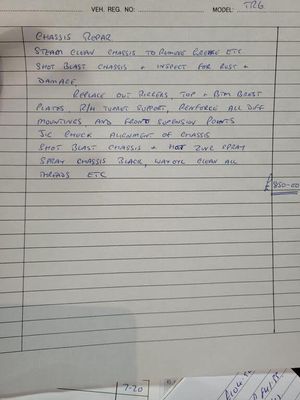 VEH. REG. NO: MODEL: TR6
CHASSIS REPAR
STEAM CLEAN CHASSIS TO REMOVE GREASE ETC
SHOT BLAST CHASSIS + INSPECT FOR RUST +
DAMAGE
REPLACE OUT RIGGERS, TOP + BTM BREST
PLATES, R/H TURRET SUPPORT, RENFORCE ALL DIFF
MOUNTINGS AND FRONT SUPENSION POINTS
JIG CHECK ALIGNMENT OF CHASSIS
SHOT BLAST CHASSIS + HOT ZINC SPRAY
SPRAY CHASSIS BLACK, WAXOYL CLEAN ALL
THREADS ETC
850-00
7-20